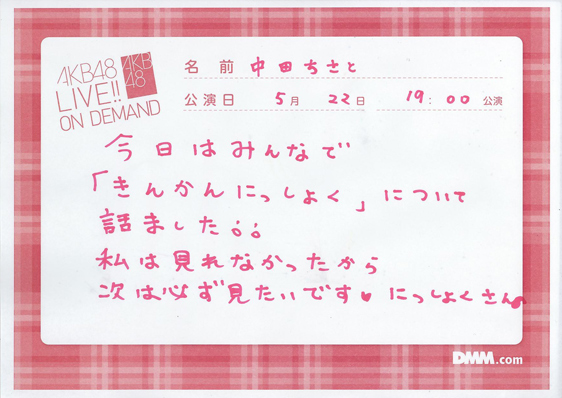 AKB48
LIVE!!
ON DEMAND
AKB
48
名前 中田ちさと
公演日 5月 22日 19:00 公演
今日はみんなで
「きんかんにっしょく」について
話ました
私は見れなかったから
次は必ず見たいです♥にっしょくさん
DMM.com